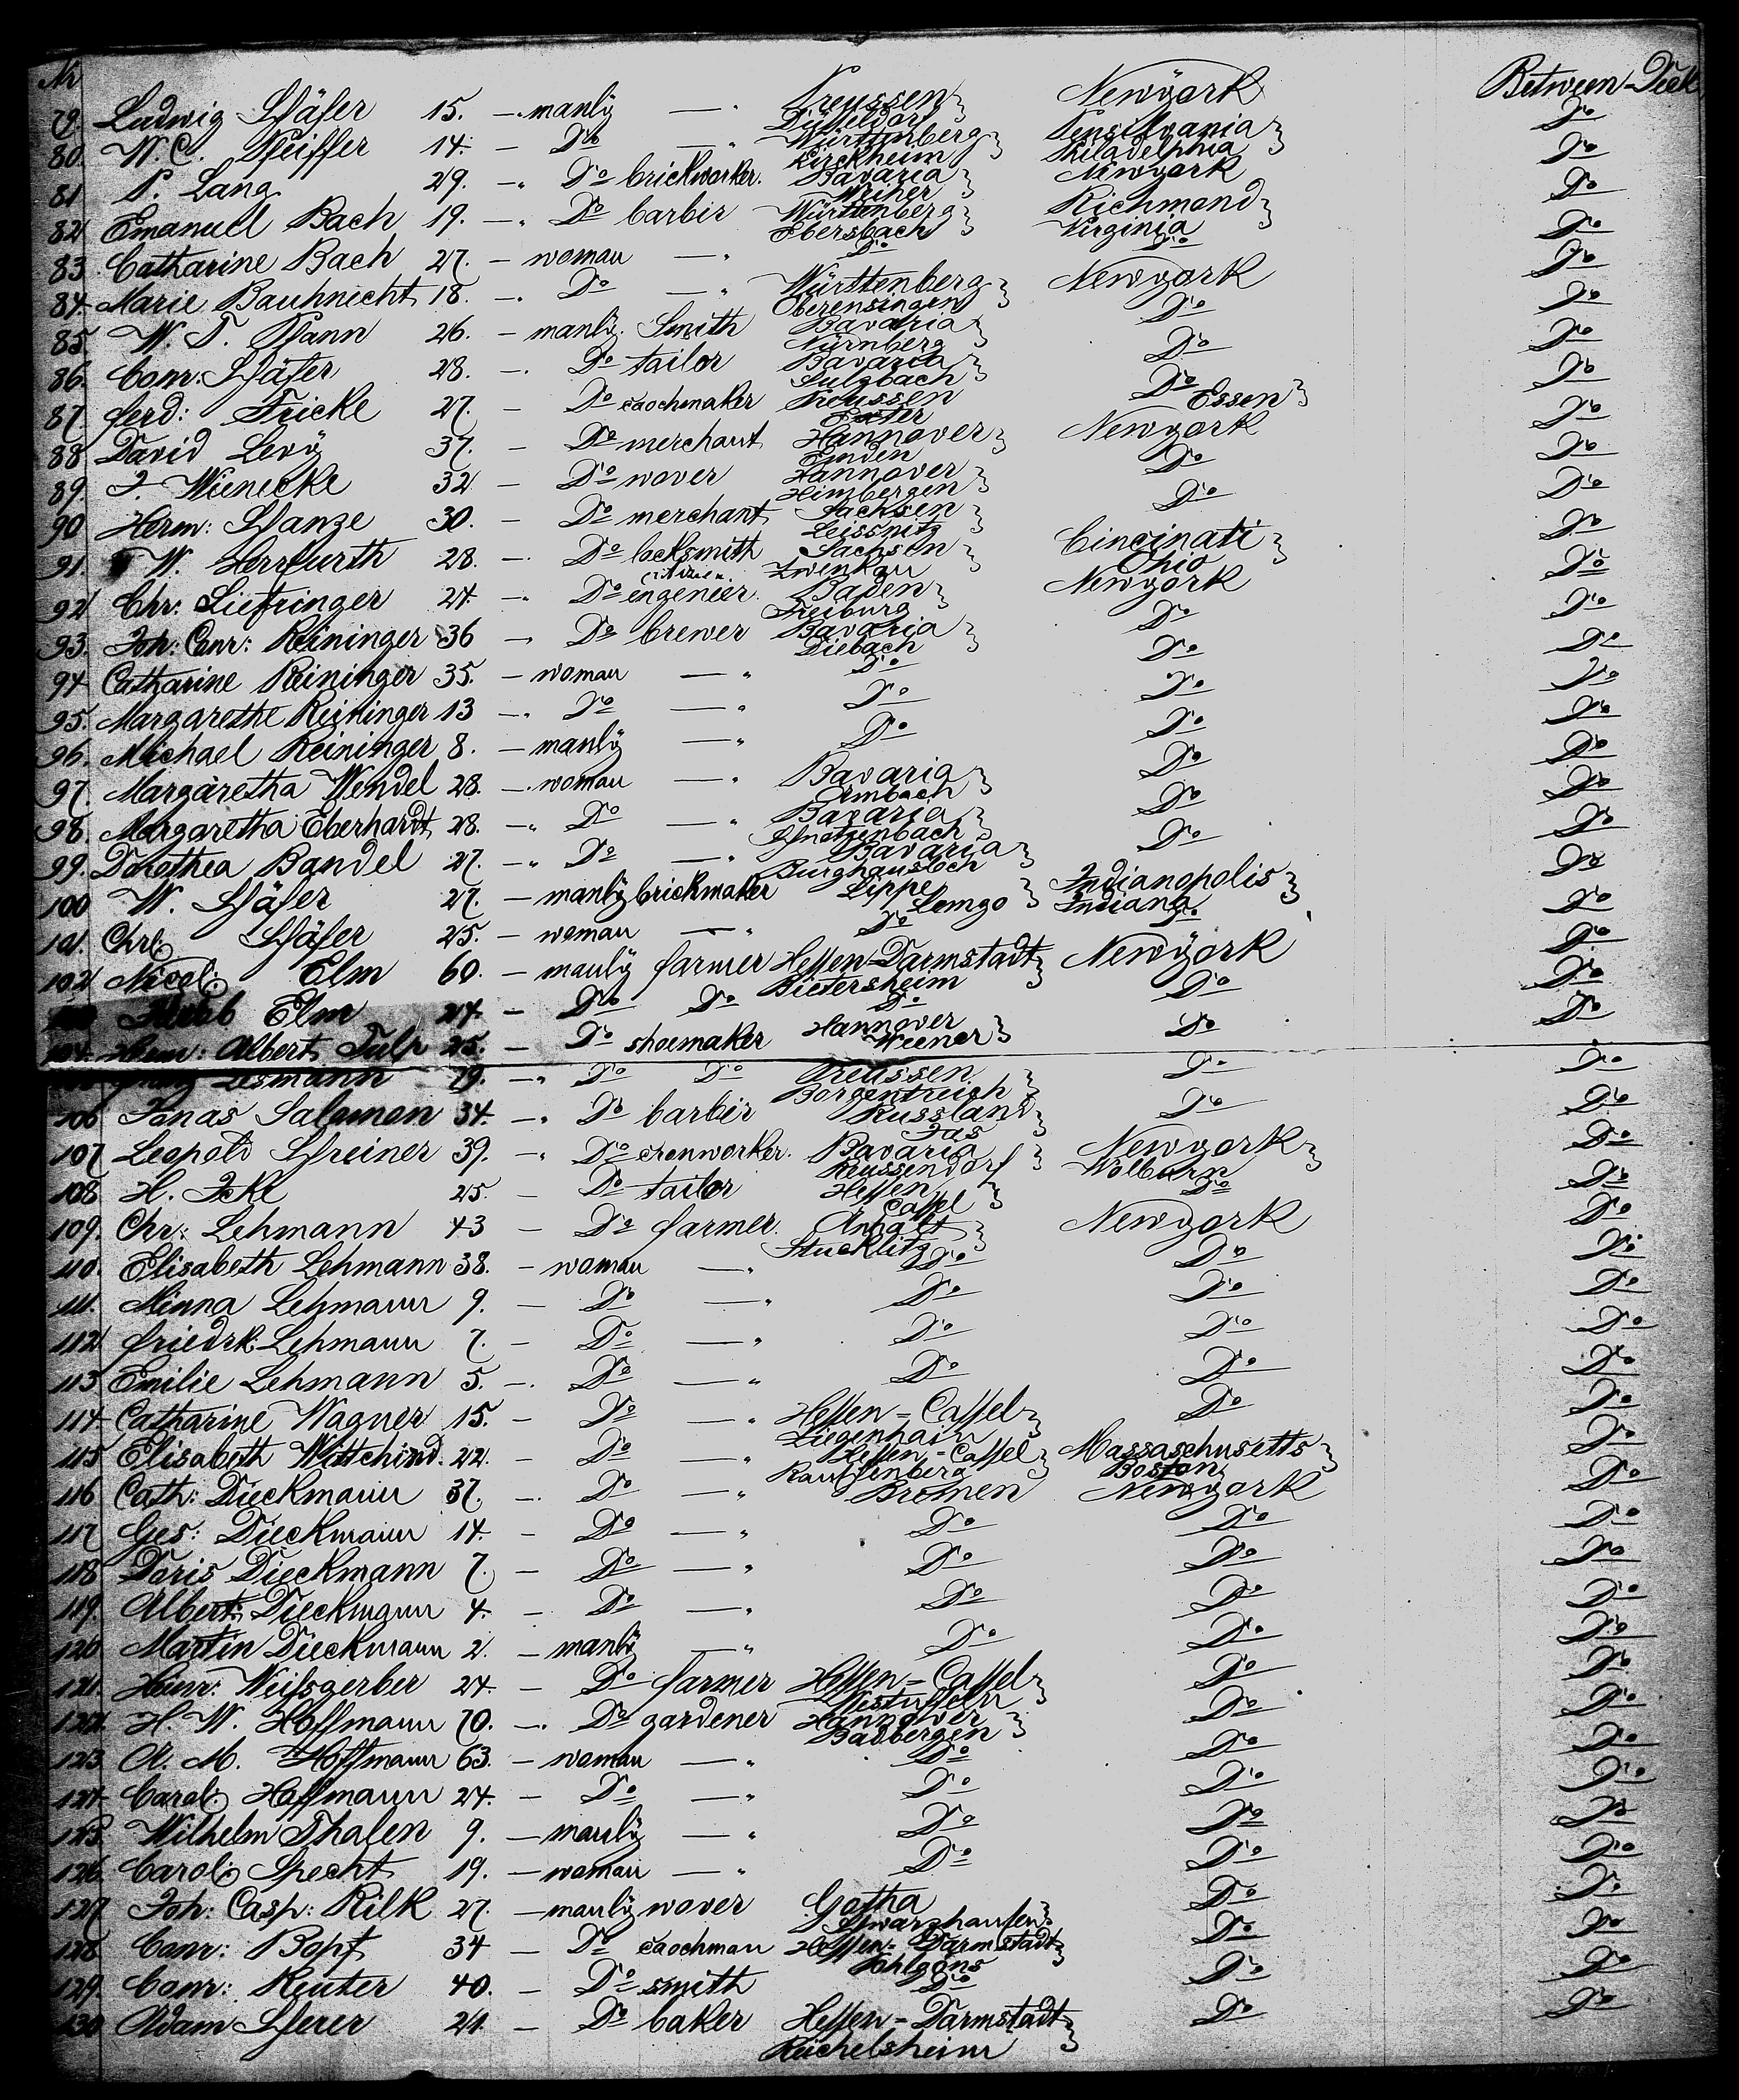 No
79. Ludwig Schäfer 15. — manlÿ — " Preussen Newÿork Between-Deck
Düsseldorf
80. W. C. Pfeiffer 14. — Do — " Württenberg Pensilvania Do
Kirckheim Philadelphia
81 P. Lang 29. — " Do brickworker. Bavaria Newyork Do
82 Emanuel Bach 19. — " Do barbir Württenberg Richmond Do
Ebersbach Virginia
83. Catharine Bach 27. — woman — " Do Do Do
84. Marie Bauknecht 18. — Do — " Württenberg Newyork Do
Oberensingen
85. W. T. Pfann 26. — manlÿ. Smith Bavaria Do Do
Nürnberg
86. Conr: Schäfer 28. — Do tailor Bavaria Do Do
Sulzbach
87 ferd: Fricke 27. — Do caochmaker Preussen Do Essen Do
88 David Levÿ 37. — Do merchant Hannover Newyork Do
Emden
89. J. Wienecke 32 — Do wover Hannover Do Do
Himbergen
90 Herm: Schanze 30. — Do merchant Sachsen Do Do
Leissnitz
91. W. Herrfurth 28. — Do locksmith Sachsen Cincinati Do
Zwenkau Ohio
92 Chr: Liefringer 24. — Do engeneer. Baden Newyork Do
Freiburg
93. Joh: Conr: Reininger 36 — Do brewer Bavaria Do Do
Diebach
94 Catharine Reininger 35. — woman — " Do Do Do
95. Margarethe Reininger 13 — Do — " Do Do Do
96. Michael Reininger 8. — manlÿ — " Do Do Do
97. Margaretha Wendel 28. — woman — " Bavaria Do Do
Ermbach
98. Margaretha Eberhardt 28. — " Do — " Bavaria Do Do
99. Dorothea Bandel 27. — " Do — " Bavaria Do Do
100 W. Schäfer 27. — manlÿ brickmaker Lippe Indianopolis Do
Lemgo Indiana
101. Chrl: Schäfer 25. — woman — " Do Do Do
102 Nicol: Elm 60. — manlÿ farmer Hessen-Darmstadt Newÿork Do
Bietersheim
Elm 24. — Do Do Do Do Do
104. Herm: Albert Tulp 25. — Do shoemaker Hannover Do Do
Weener
Lesmann 19. — " Do Do Preussen Do Do
Borgentreich
106 Jonas Salomon 34. — " Do barbir Russland Do Do
Jas
107 Leopold Schreiner 39. — " Do Bavaria Newyork Do
Reussendorf Wolburn
108 H. Icke 25. — Do tailor Hessen Do Do
Cassel
109. Chr: Lehmann 43 — Do farmer. Anhalt Newyork Do
110. Elisabeth Lehmann 38. — woman — " Do Do Do
111. Minna Lehmann 9. — Do — " Do Do Do
112 friedrk: Lehmann 7. — Do — " Do Do Do
113 Emilie Lehmann 5. — Do — " Do Do Do
114 Catharine Wagner 15. — Do — " Hessen=Cassel Do Do
Ziegenhain
115 Elisabeth Wittchind. 22. — Do — " Hessen-Cassel Massaschusetts Do
Rauschenberg Boston
116 Cath: Dieckmann 37. — Do — " Bremen Newyork Do
117 Ges: Dieckmann 14. — Do — " Do Do Do
118 Doris Dieckmann 7. — Do — " Do Do Do
119. Albert: Dieckmann 4. — Do — " Do Do Do
120 Martin Dieckmann 2. — manlÿ — " Do Do Do
121. Heinr: Weissgerber 24. — Do farmer Hessen=Cassel Do Do
122. H. W. Hoffmann 70. — Do gardener Hannover Do Do
Badbergen
123 A. M. Hoffmann 63. — woman — " Do Do Do
124. Carol: Hoffmann 24. — Do — " Do Do Do
125. Wilhelm Thalen 9. — manlÿ — " Do Do Do
126. Carol: Specht 19. — woman — " Do Do Do
127 Joh: Casp: Rilk 27. — manlÿ wover Gotha Do Do
Schwarzhausen
128 Conr: Bopf 34 — Do caochman Hessen-Darmstadt Do Do
Pohlgöns
129. Conr: Reuter 40. — Do smith Do Do Do
130 Adam Scherer 21. — Do baker Hessen-Darmstadt Do Do
Reichelsheim